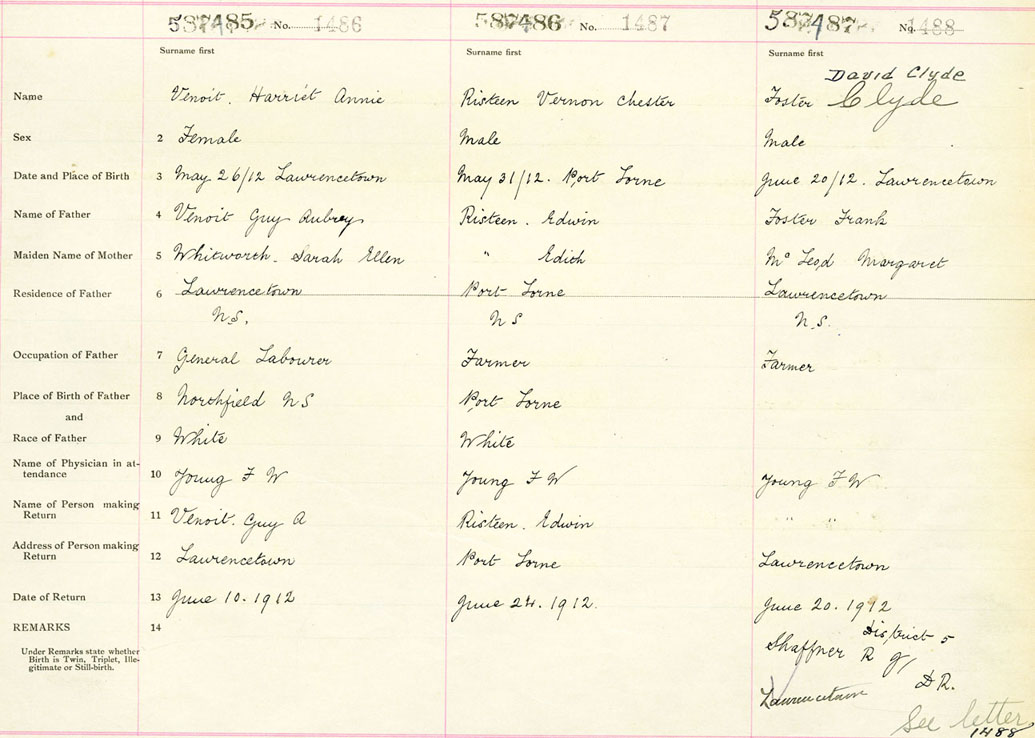 587485 No. 1486 587486 No. 1487 587487 No. 1488
Surname first Surname first Surname first
David Clyde
Name Venoit. Harriet Annie Risteen Vernon Chester Foster Clyde
Sex 2 Female Male Male
Date and Place of Birth 3 May 26/12 Lawrencetown May 31/12. Port Lorne June 20/12. Lawrencetown
Name of Father 4 Venoit Guy Aubrey Risteen. Edwin Foster Frank
Maiden Name of Mother 5 Whitworth. Sarah Ellen " Edith Mc Leod Margaret
Residence of Father 6 Lawrencetown Port Lorne Lawrencetown
N.S. N S N.S.
Occupation of Father 7 General Labourer Farmer Farmer
Place of Birth of Father 8 Northfield N S Port Lorne
and
Race of Father 9 White White
Name of Physician in at-
tendance 10 Young F W Young F W Young F W
Name of Person making
Return 11 Venoit. Guy A Risteen. Edwin " "
Address of Person making
Return 12 Lawrencetown Port Lorne Lawrencetown
Date of Return 13 June 10. 1912 June 24. 1912. June 20. 1912
REMARKS 14
District 5
Under Remarks state whether
Birth is Twin, Triplet, Ille-
gitimate or Still-birth.
Shaffner R J,
Lawrencetown D R.
See letter
1488